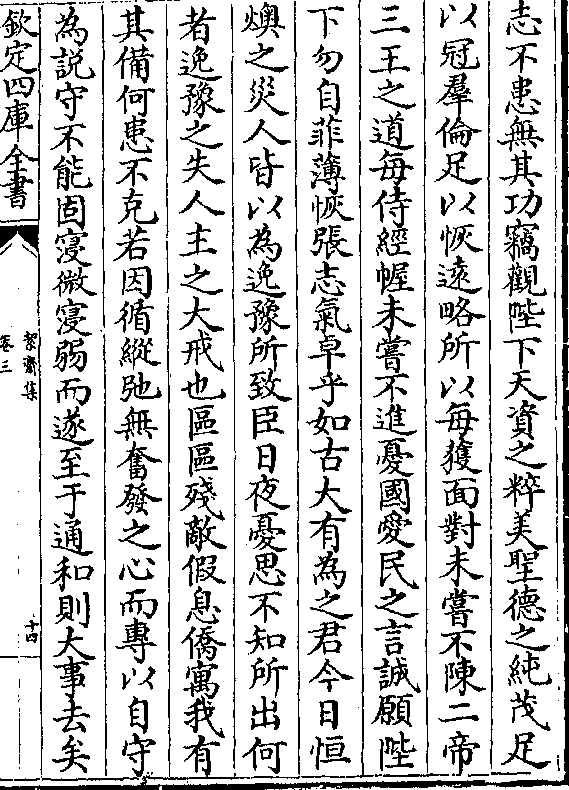 志不患無其功竊觀陛下天資之粹美聖德之純茂足
以冠羣倫足以恢遠略所以每獲面對未嘗不陳二帝
三王之道每侍經幄未嘗不進憂國愛民之言誠願陛
下勿自菲薄恢張志氣卓乎如古大有為之君今日恒
燠之災人皆以為逸豫所致臣日夜憂思不知所出何
者逸豫之失人主之大戒也區區殘敵假息僑寓我有
其備何患不克若因循縱弛無奮發之心而專以自守
為説守不能固寖微寖弱而遂至于通和則大事去矣
欽定四庫全書
絜齋集
卷三
十四